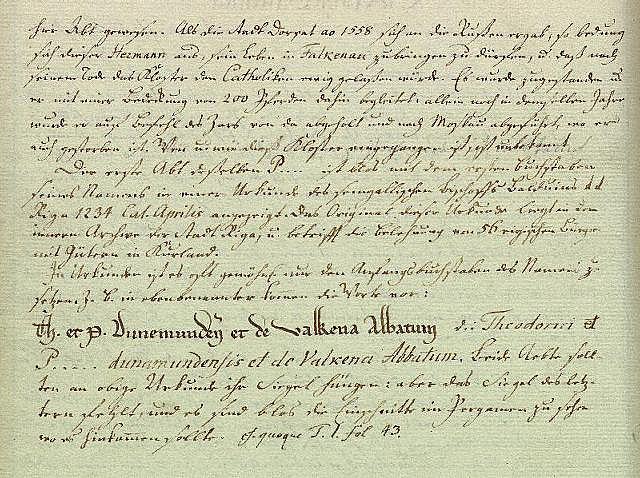 hier Abt gewesen. Als die Stadt Dorpat ao 1558 sich an die Rußen ergab, so bedung
sich dieser Hermann aus, sein Leben in Falkenau zubringen zu dürffen, u. daß nach
seinem Tode das Kloster den Catholiken ewig gelaßen würde. Es wurde zugestanden u.
er mit einer Bedeckung von 200 Pferden dahin begleitet: allein noch in demselben Jahre
wurde er auf Befehl des Zars von da abgeholt und nach Moskau abgeführt, wo er
auch gestorben ist. Wenn u. wie dieses Kloster eingegangen ist, ist unbekannt.
Der erste Abt desselben P.... ist blos mit dem ersten Buchstaben
seines Namens in einer Urkunde des semgallischen Bischoffs Balduins dd
Riga 1234 Cal. Aprilis angezeigt. Das Original dieser Urkunde liegt in dem
innern Archive der Stadt Riga, u. betrifft die Belehnung von 56 rigischen Bürgern
mit Gütern in Kurland.
In Urkunden ist es oft gewöhnl. nur den Anfangsbuchstaben des Namens zu
setzen. Z. B. in ebenbenannter kommen die Worte vor:
Th. et P. Dunemundeń et de Valkena Abbatum d. i. Theodorici et
P..... dunamundensis et de Valkena Abbatum. Beide Aebte soll-
ten an obige Urkunde ihr Siegel hängen: aber das Siegel des letz-
tern fehlt, und es sind blos die Einschnitte im Pergamen zu sehen
wo es hinkommen sollte. cf. quoque T. I. fol 43.